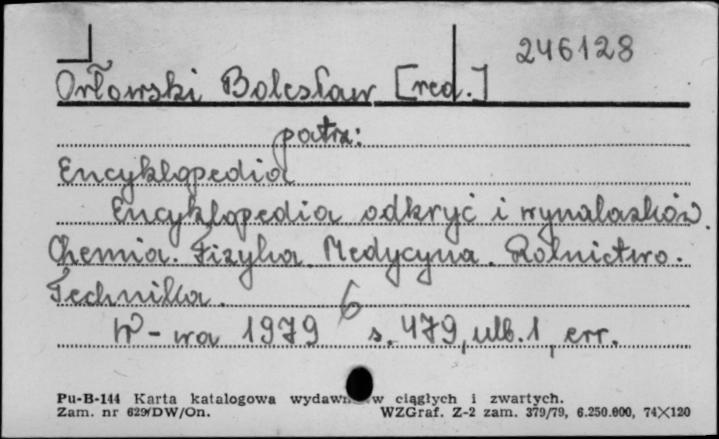 246128
Orłowski Bolesław [red.]
patrz:
Encyklopedia
Encyklopedia odkryć i wynalazków.
Chemia. Fizyka. Medycyna. Rolnictwo.
Technika.
W-wa 1979 6 s. 479, ulb. 1, err.
Pu-B-144 Karta katalogowa wydawn w ciągłych i zwartych.
Zam. nr 629/DW/On. WZGraf. Z-2 zam. 379/79, 6.250.000, 74×120